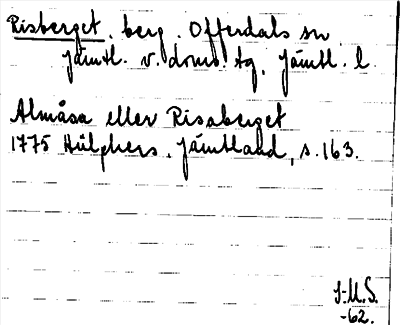 Risberget. berg. Offerdals sn
Jämtl. v. doms. tg. Jämtl. l.
Almåsa eller Risaberget
1775 Hülphers, Jämtland, s. 163.
J-M.S.
-62.